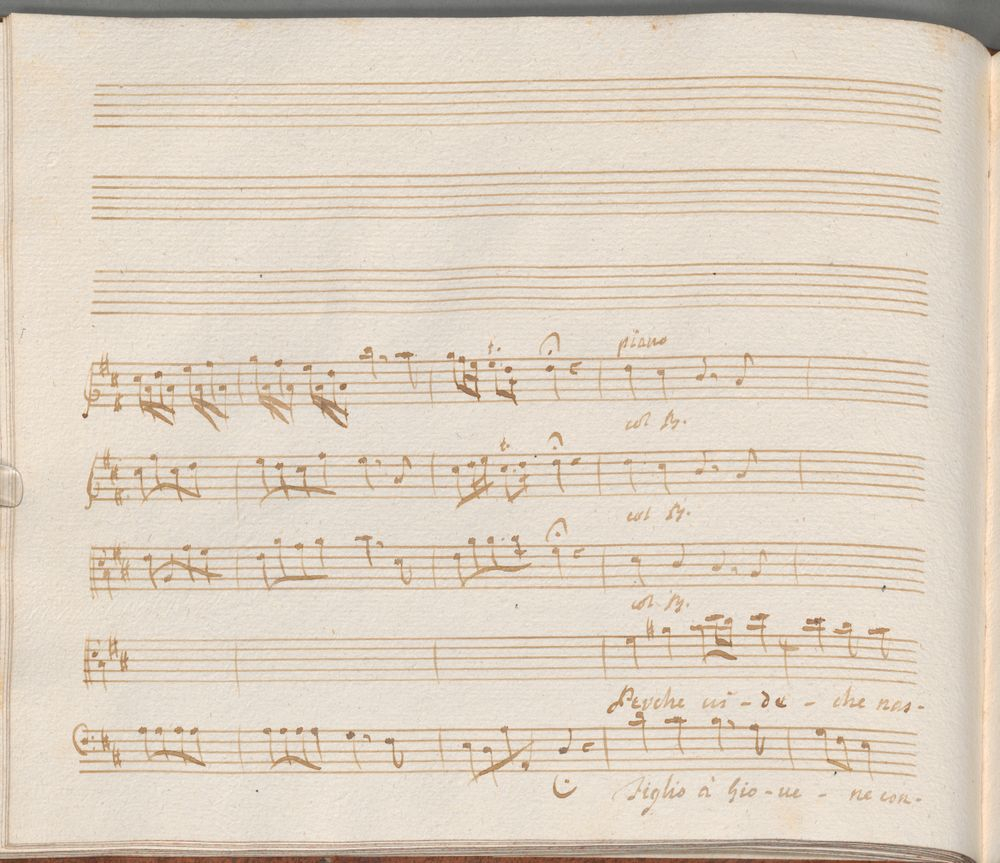 piano
col B.
col B.
col B.
Perche ui - de - che nas-
Figlio à Gio - ue - ne con-